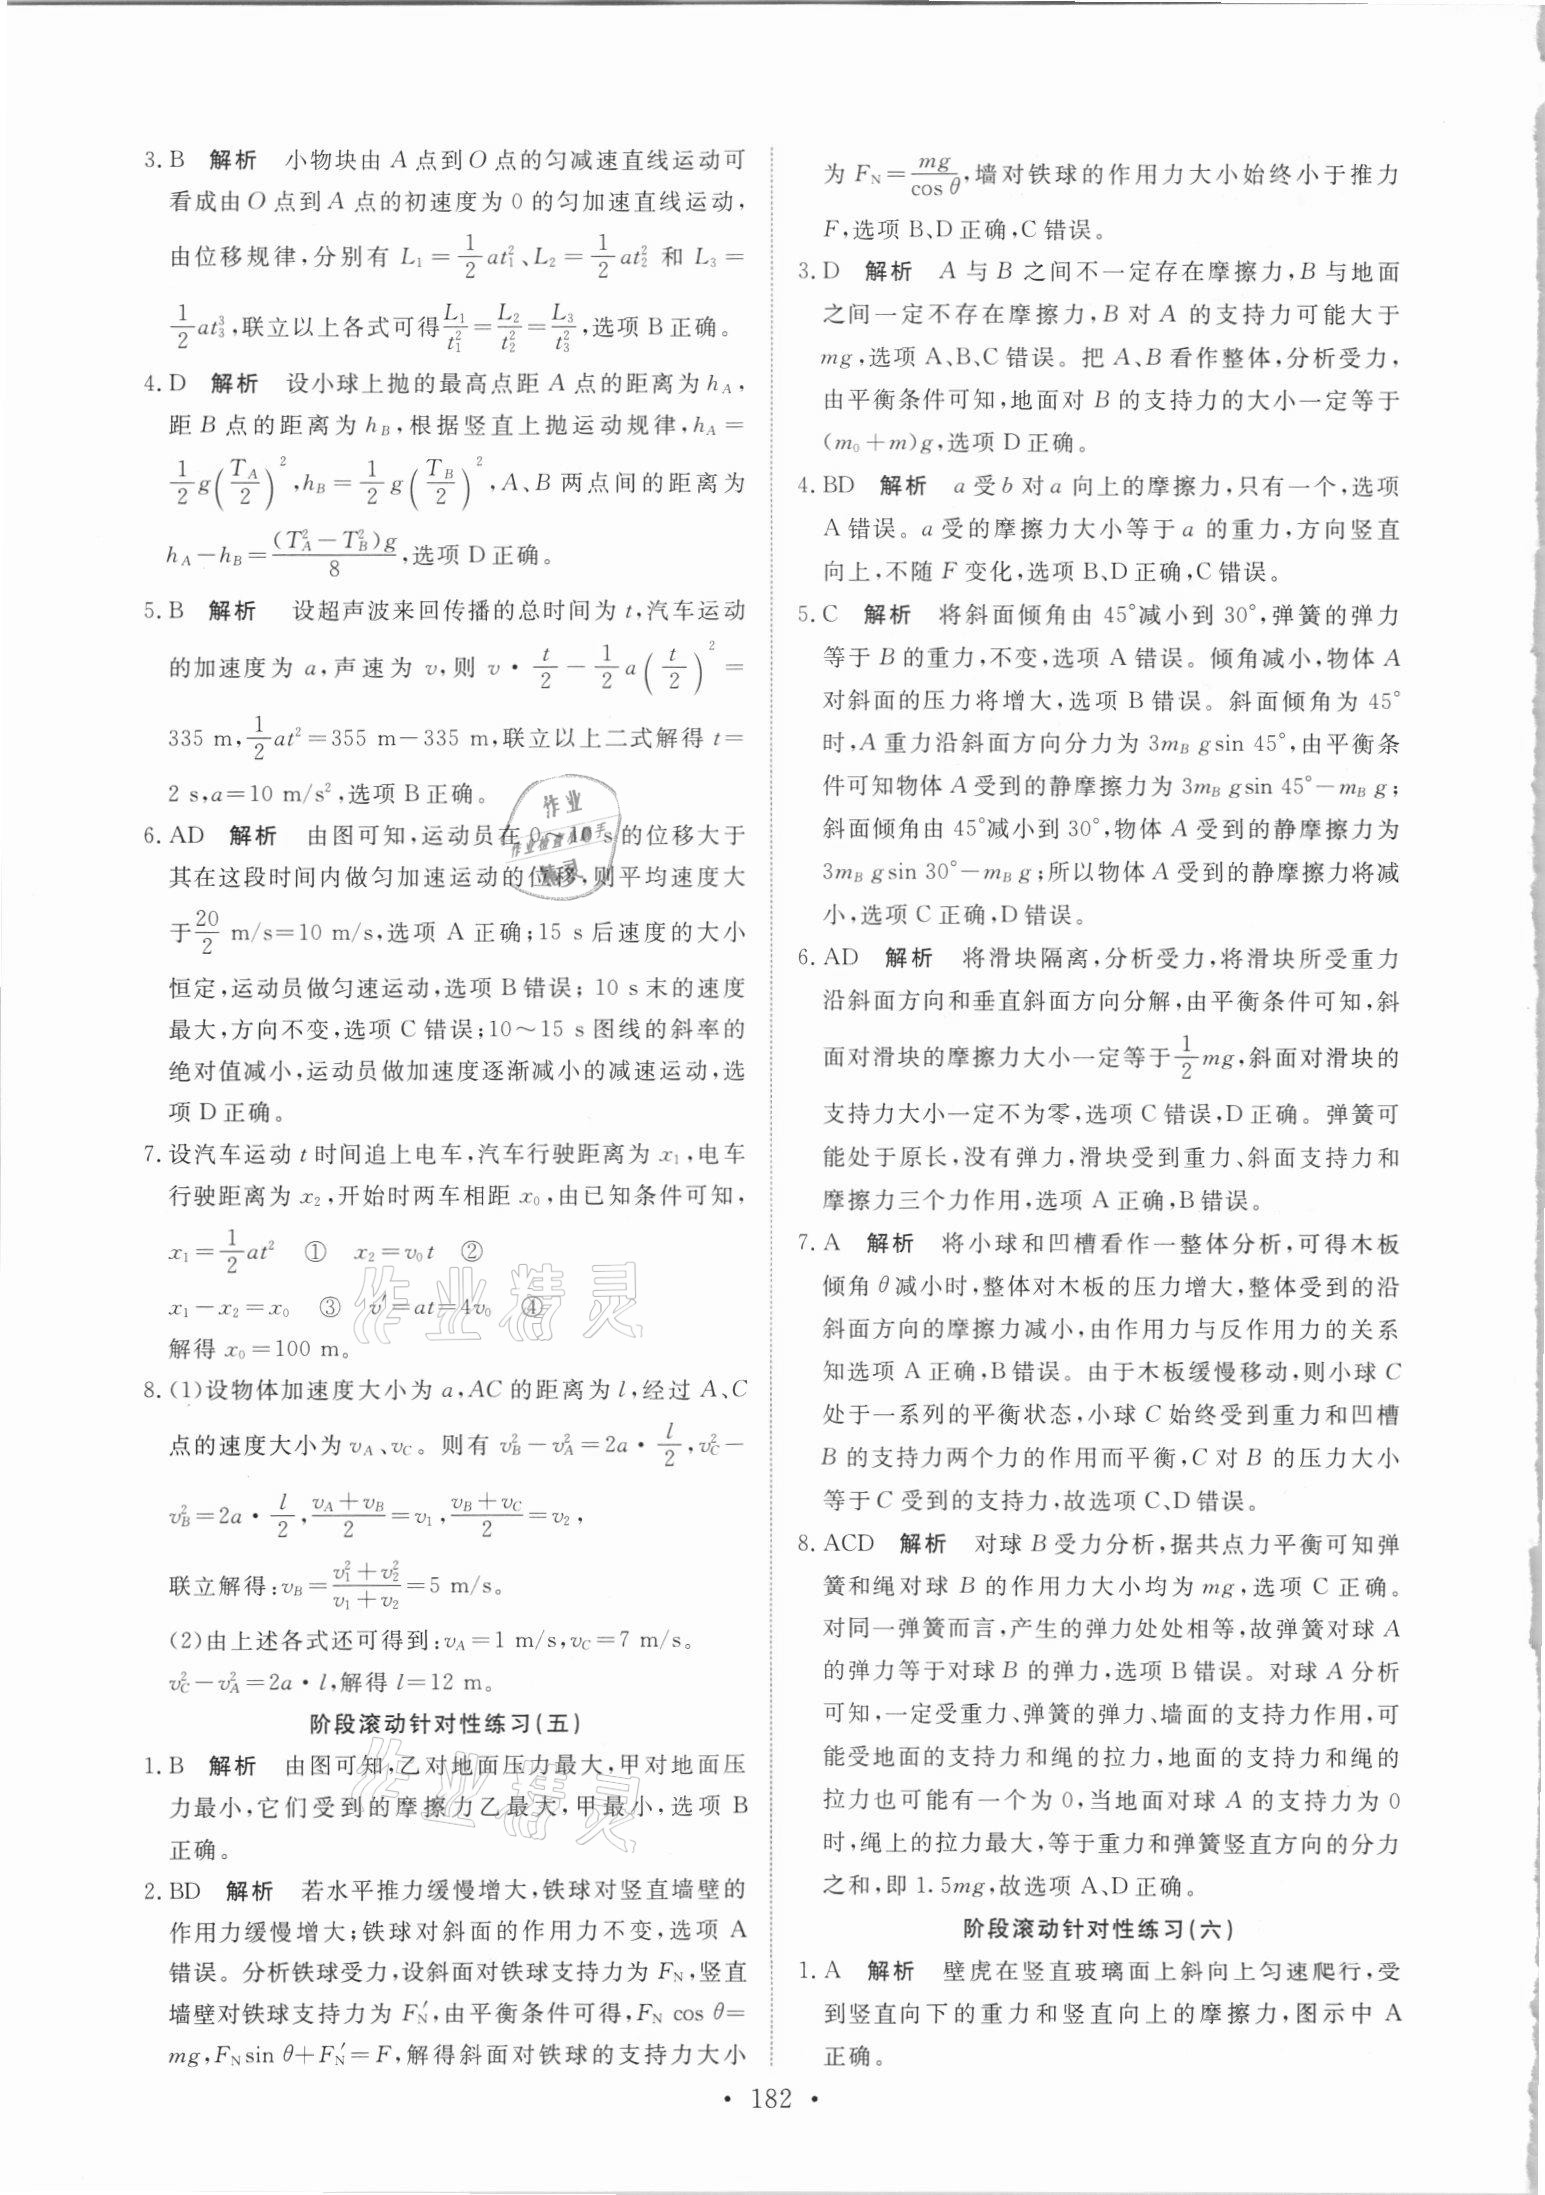 3. B 解析 小物块由 A 点到 O 点的匀减速直线运动可
看成由 O 点到 A 点的初速度为 0 的匀加速直线运动,
由位移规律,分别有 L₁=1/2 at₁²、L₂=1/2 at₂² 和 L₃=
1/2 at₃³,联立以上各式可得 L₁/t₁²=L₂/t₂²=L₃/t₃²,选项 B 正确。
4. D 解析 设小球上抛的最高点距 A 点的距离为 h_A,
距 B 点的距离为 h_B,根据竖直上抛运动规律,h_A=
1/2 g(T_A/2)²,h_B=1/2 g(T_B/2)²,A、B 两点间的距离为
h_A-h_B=(T_A²-T_B²)g/8,选项 D 正确。
5. B 解析 设超声波来回传播的总时间为 t,汽车运动
的加速度为 a,声速为 v,则 v·t/2-1/2 a(t/2)²=
335 m,1/2 at²=355 m-335 m,联立以上二式解得 t=
2 s,a=10 m/s²,选项 B 正确。
6. AD 解析 由图可知,运动员在 0~10 s 的位移大于
其在这段时间内做匀加速运动的位移,则平均速度大
于 20/2 m/s=10 m/s,选项 A 正确;15 s 后速度的大小
恒定,运动员做匀速运动,选项 B 错误;10 s 末的速度
最大,方向不变,选项 C 错误;10~15 s 图线的斜率的
绝对值减小,运动员做加速度逐渐减小的减速运动,选
项 D 正确。
7. 设汽车运动 t 时间追上电车,汽车行驶距离为 x₁,电车
行驶距离为 x₂,开始时两车相距 x₀,由已知条件可知,
x₁=1/2 at² ① x₂=v₀t ②
x₁-x₂=x₀ ③ v′=at=4v₀ ④
解得 x₀=100 m。
8. (1)设物体加速度大小为 a,AC 的距离为 l,经过 A、C
点的速度大小为 v_A、v_C。则有 v_B²-v_A²=2a·l/2,v_C²-
v_B²=2a·l/2,(v_A+v_B)/2=v₁,(v_B+v_C)/2=v₂,
联立解得:v_B=(v₁²+v₂²)/(v₁+v₂)=5 m/s。
(2)由上述各式还可得到:v_A=1 m/s,v_C=7 m/s。
v_C²-v_A²=2a·l,解得 l=12 m。
阶段滚动针对性练习(五)
1. B 解析 由图可知,乙对地面压力最大,甲对地面压
力最小,它们受到的摩擦力乙最大,甲最小,选项 B
正确。
2. BD 解析 若水平推力缓慢增大,铁球对竖直墙壁的
作用力缓慢增大;铁球对斜面的作用力不变,选项 A
错误。分析铁球受力,设斜面对铁球支持力为 F_N,竖直
墙壁对铁球支持力为 F_N′,由平衡条件可得,F_N cos θ=
mg,F_N sin θ+F_N′=F,解得斜面对铁球的支持力大小
为 F_N=mg/cos θ,墙对铁球的作用力大小始终小于推力
F,选项 B、D 正确,C 错误。
3. D 解析 A 与 B 之间不一定存在摩擦力,B 与地面
之间一定不存在摩擦力,B 对 A 的支持力可能大于
mg,选项 A、B、C 错误。把 A、B 看作整体,分析受力,
由平衡条件可知,地面对 B 的支持力的大小一定等于
(m₀+m)g,选项 D 正确。
4. BD 解析 a 受 b 对 a 向上的摩擦力,只有一个,选项
A 错误。a 受的摩擦力大小等于 a 的重力,方向竖直
向上,不随 F 变化,选项 B、D 正确,C 错误。
5. C 解析 将斜面倾角由 45°减小到 30°,弹簧的弹力
等于 B 的重力,不变,选项 A 错误。倾角减小,物体 A
对斜面的压力将增大,选项 B 错误。斜面倾角为 45°
时,A 重力沿斜面方向分力为 3m_B gsin 45°,由平衡条
件可知物体 A 受到的静摩擦力为 3m_B gsin 45°-m_B g;
斜面倾角由 45°减小到 30°,物体 A 受到的静摩擦力为
3m_B gsin 30°-m_B g;所以物体 A 受到的静摩擦力将减
小,选项 C 正确,D 错误。
6. AD 解析 将滑块隔离,分析受力,将滑块所受重力
沿斜面方向和垂直斜面方向分解,由平衡条件可知,斜
面对滑块的摩擦力大小一定等于 1/2 mg,斜面对滑块的
支持力大小一定不为零,选项 C 错误,D 正确。弹簧可
能处于原长,没有弹力,滑块受到重力、斜面支持力和
摩擦力三个力作用,选项 A 正确,B 错误。
7. A 解析 将小球和凹槽看作一整体分析,可得木板
倾角 θ 减小时,整体对木板的压力增大,整体受到的沿
斜面方向的摩擦力减小,由作用力与反作用力的关系
知选项 A 正确,B 错误。由于木板缓慢移动,则小球 C
处于一系列的平衡状态,小球 C 始终受到重力和凹槽
B 的支持力两个力的作用而平衡,C 对 B 的压力大小
等于 C 受到的支持力,故选项 C、D 错误。
8. ACD 解析 对球 B 受力分析,据共点力平衡可知弹
簧和绳对球 B 的作用力大小均为 mg,选项 C 正确。
对同一弹簧而言,产生的弹力处处相等,故弹簧对球 A
的弹力等于对球 B 的弹力,选项 B 错误。对球 A 分析
可知,一定受重力、弹簧的弹力、墙面的支持力作用,可
能受地面的支持力和绳的拉力,地面的支持力和绳的
拉力也可能有一个为 0,当地面对球 A 的支持力为 0
时,绳上的拉力最大,等于重力和弹簧竖直方向的分力
之和,即 1.5mg,故选项 A、D 正确。
阶段滚动针对性练习(六)
1. A 解析 壁虎在竖直玻璃面上斜向上匀速爬行,受
到竖直向下的重力和竖直向上的摩擦力,图示中 A
正确。
· 182 ·
作业精灵
作业精灵
作业
精灵